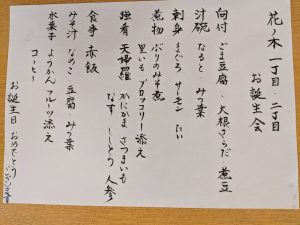 花ノ木 一丁目・二丁目
お誕生会
向付 ごま豆腐・大根さらだ 煮豆
汁碗 なると みつ葉
刺身 まぐろ サーモン たい
煮物 ぶりのみそ煮
里いも ブロッコリー添え
強肴 天婦羅 かにかま さつまいも
なす ししとう 人参
食事 赤飯
みそ汁 なめこ 豆腐 みつ葉
水菓子 ようかん フルーツ添え
コーヒー
お誕生日 おめでとう